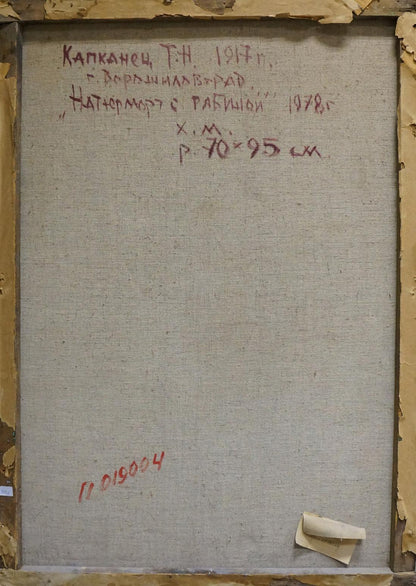 Капканец Т.Н. 1917 г.
г. Ворошиловград
„Натюрморт с рябиной" 1978 г
х.м.
р. 70×95 см
П 019004